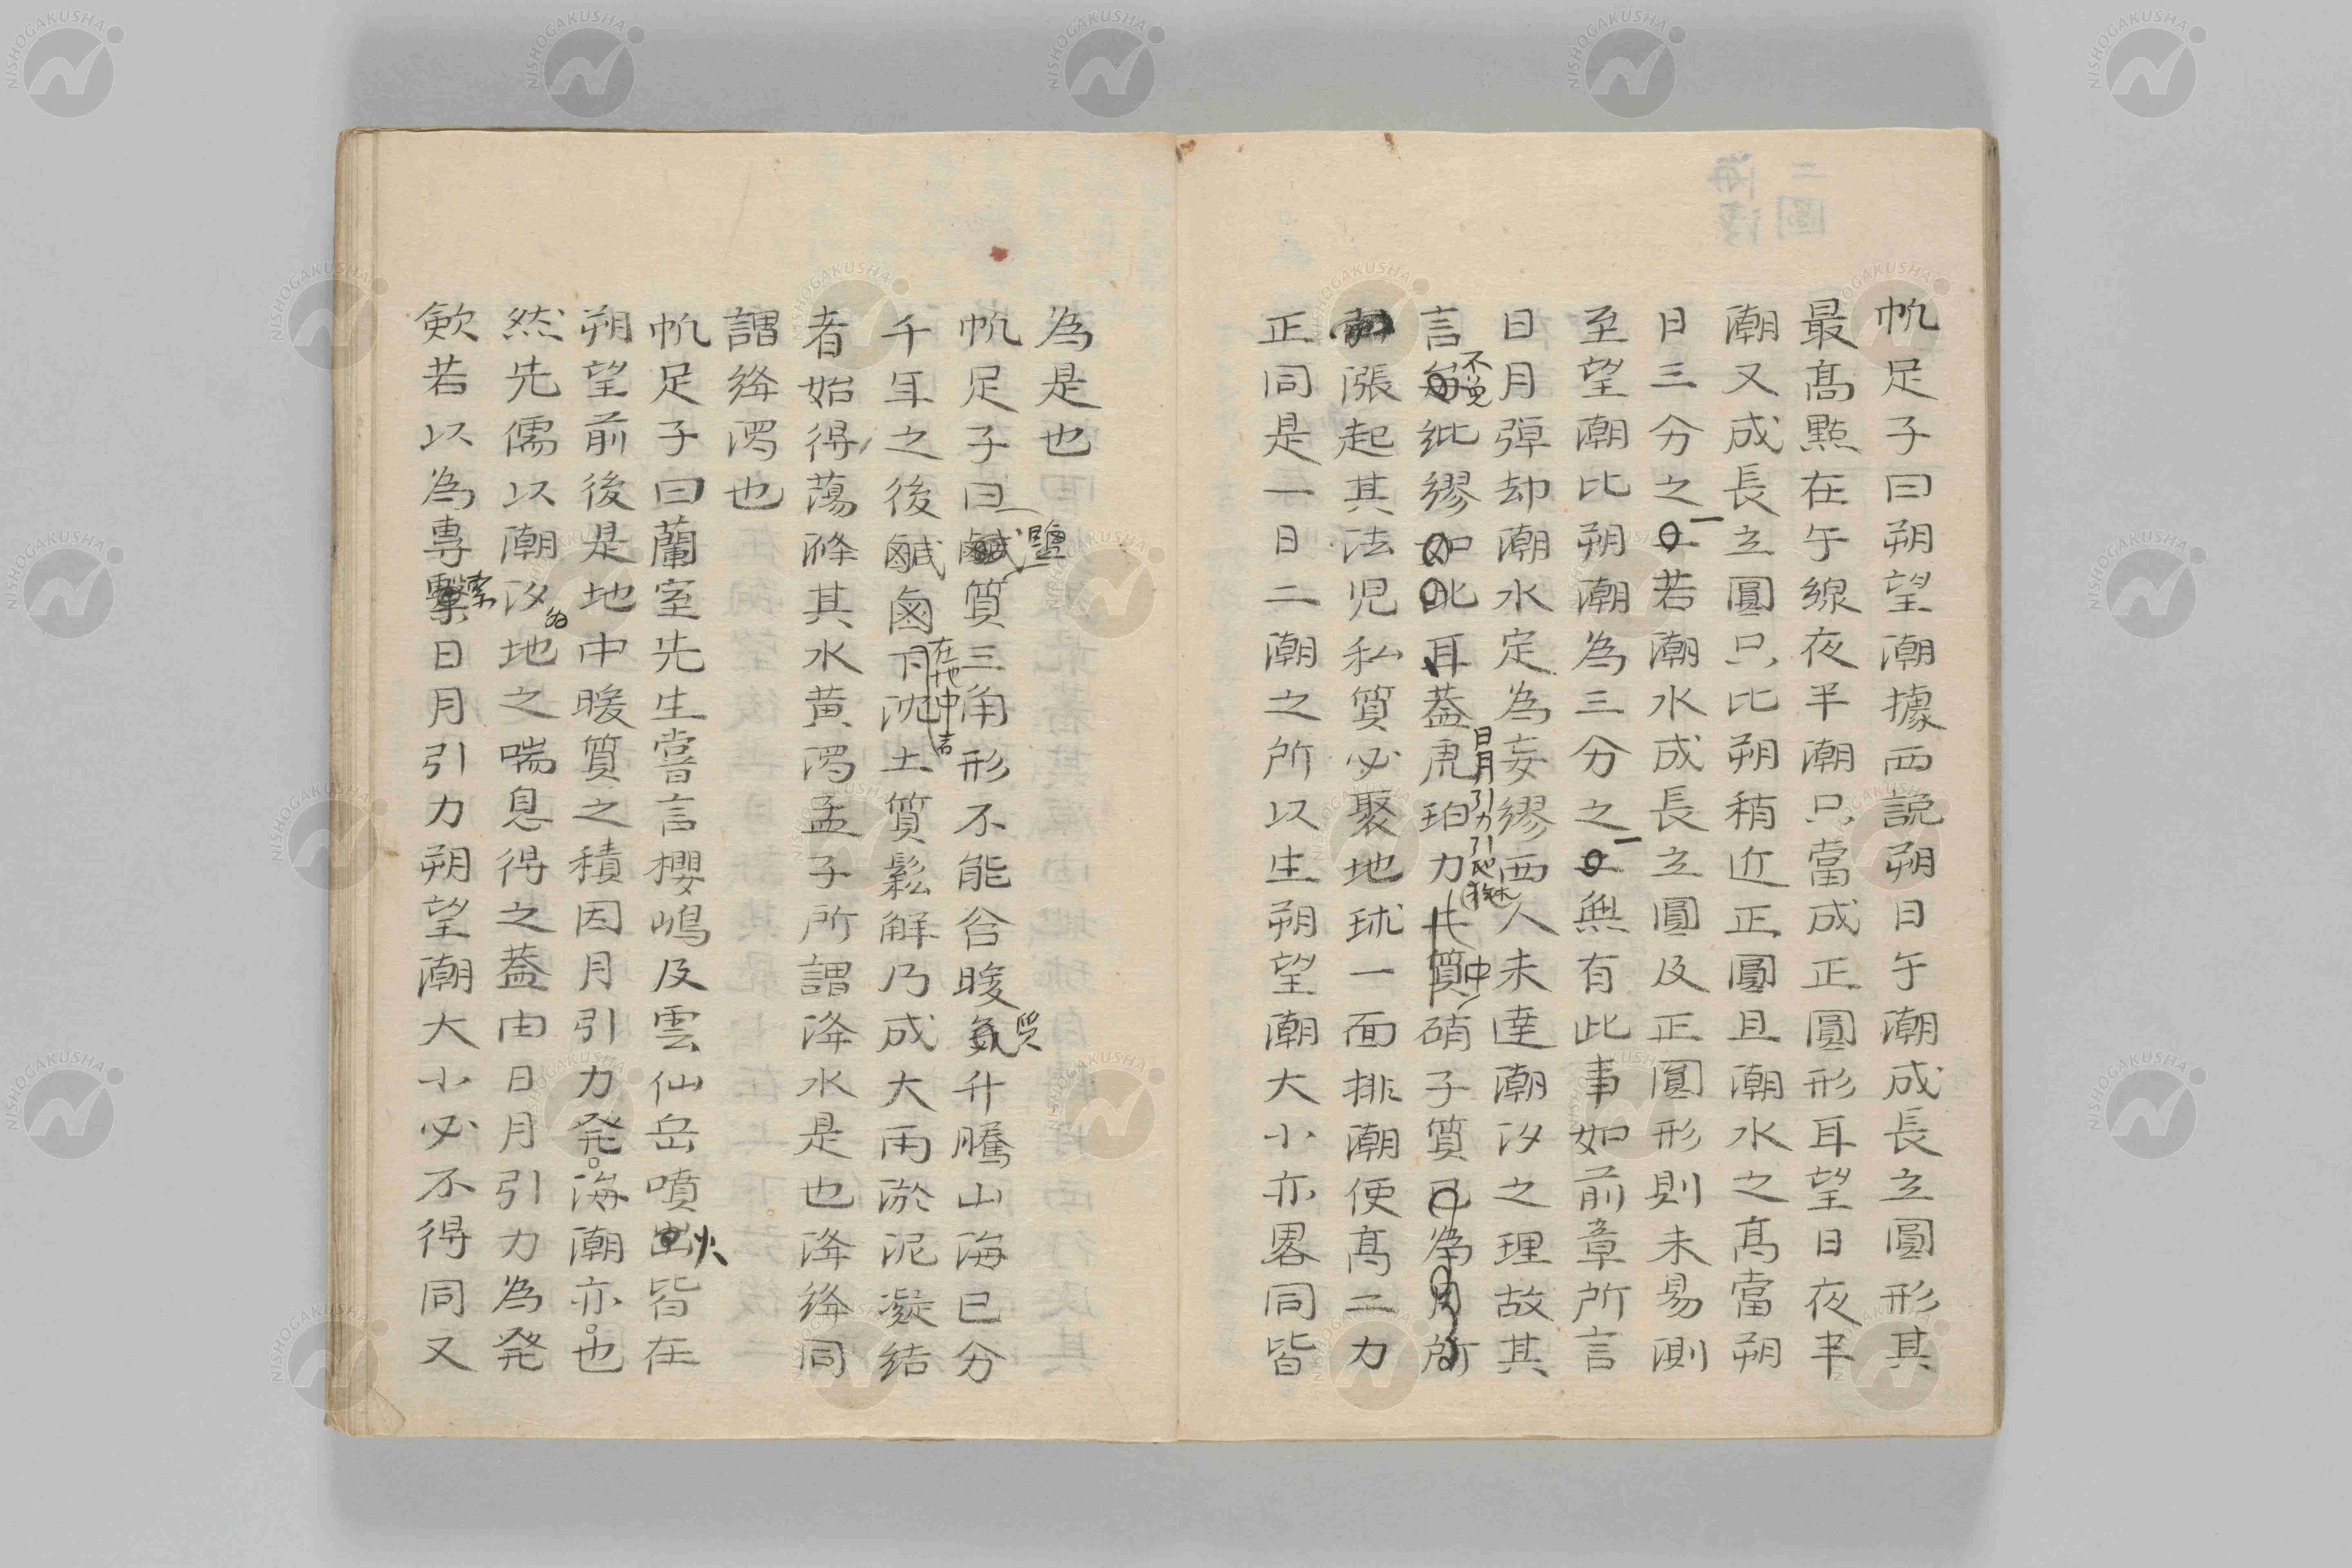 帆足子曰朔望潮據西説朔日午潮成長立圓形其
最髙點在午線夜半潮只當成正圓形耳望日夜半
潮又成長立圓只比朔稍近正圓且潮水之髙當朔
日三分之一若潮水成長立圓及正圓形則未易測
至望潮比朔潮為三分之一無有此事如前章所言
日月彈却潮水定為妄繆西人未達潮汐之理故其
言不免紕繆耳蓋日月引力引地猶琥珀力中硝子質
漲起其法児私質必聚地球一面排潮便髙二力
正同是一日二潮之所以生朔望潮大小亦畧同皆
為是也
帆足子曰鹽質三角形不能合暖質升騰山海已分
千年之後鹹鹵在地中者下沈土質鬆解乃成大雨淤泥凝結
者始得蕩滌其水黄濁孟子所謂洚水是也洚絳同
謂絳濁也
帆足子曰蘭室先生嘗言櫻嶋及雲仙岳噴火皆在
朔望前後是地中暖質之積因月引力発海潮亦也
然先儒以潮汐為地之喘息得之蓋由日月引力為発
欸若以為專索日月引力朔望潮大小必不得同又
NISHOGAKUSHA